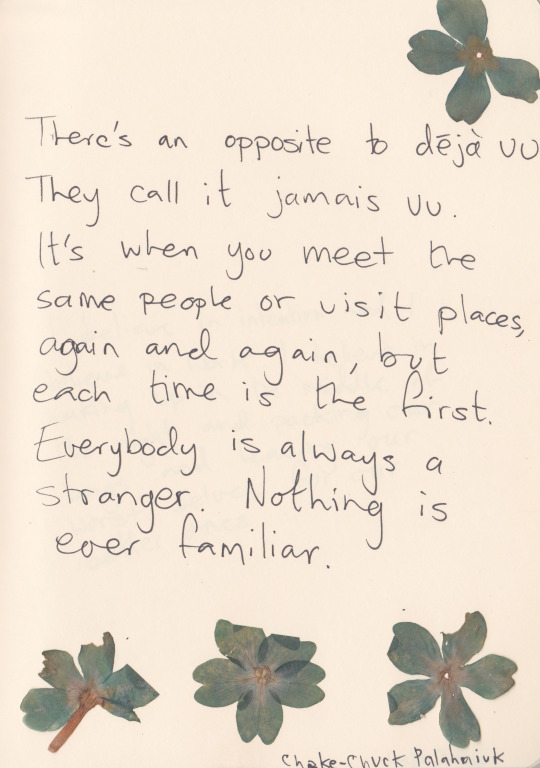 There's an opposite to dējà vu
They call it jamais vu.
It's when you meet the
same people or visit places,
again and again, but
each time is the first.
Everybody is always a
stranger. Nothing is
ever familiar.
Choke-Chuck Palahniuk